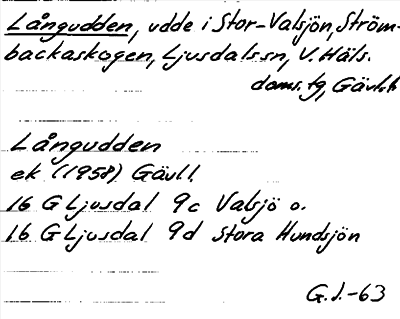 Långudden, udde i Stor-Valsjön, Ström-
backaskogen, Ljusdals sn, V. Häls.
doms. tg, Gävl.
Långudden
ek (1958) Gävll.
16 G Ljusdal 9c Valsjö o.
16 G Ljusdal 9d Stora Hundsjön
G.J.-63